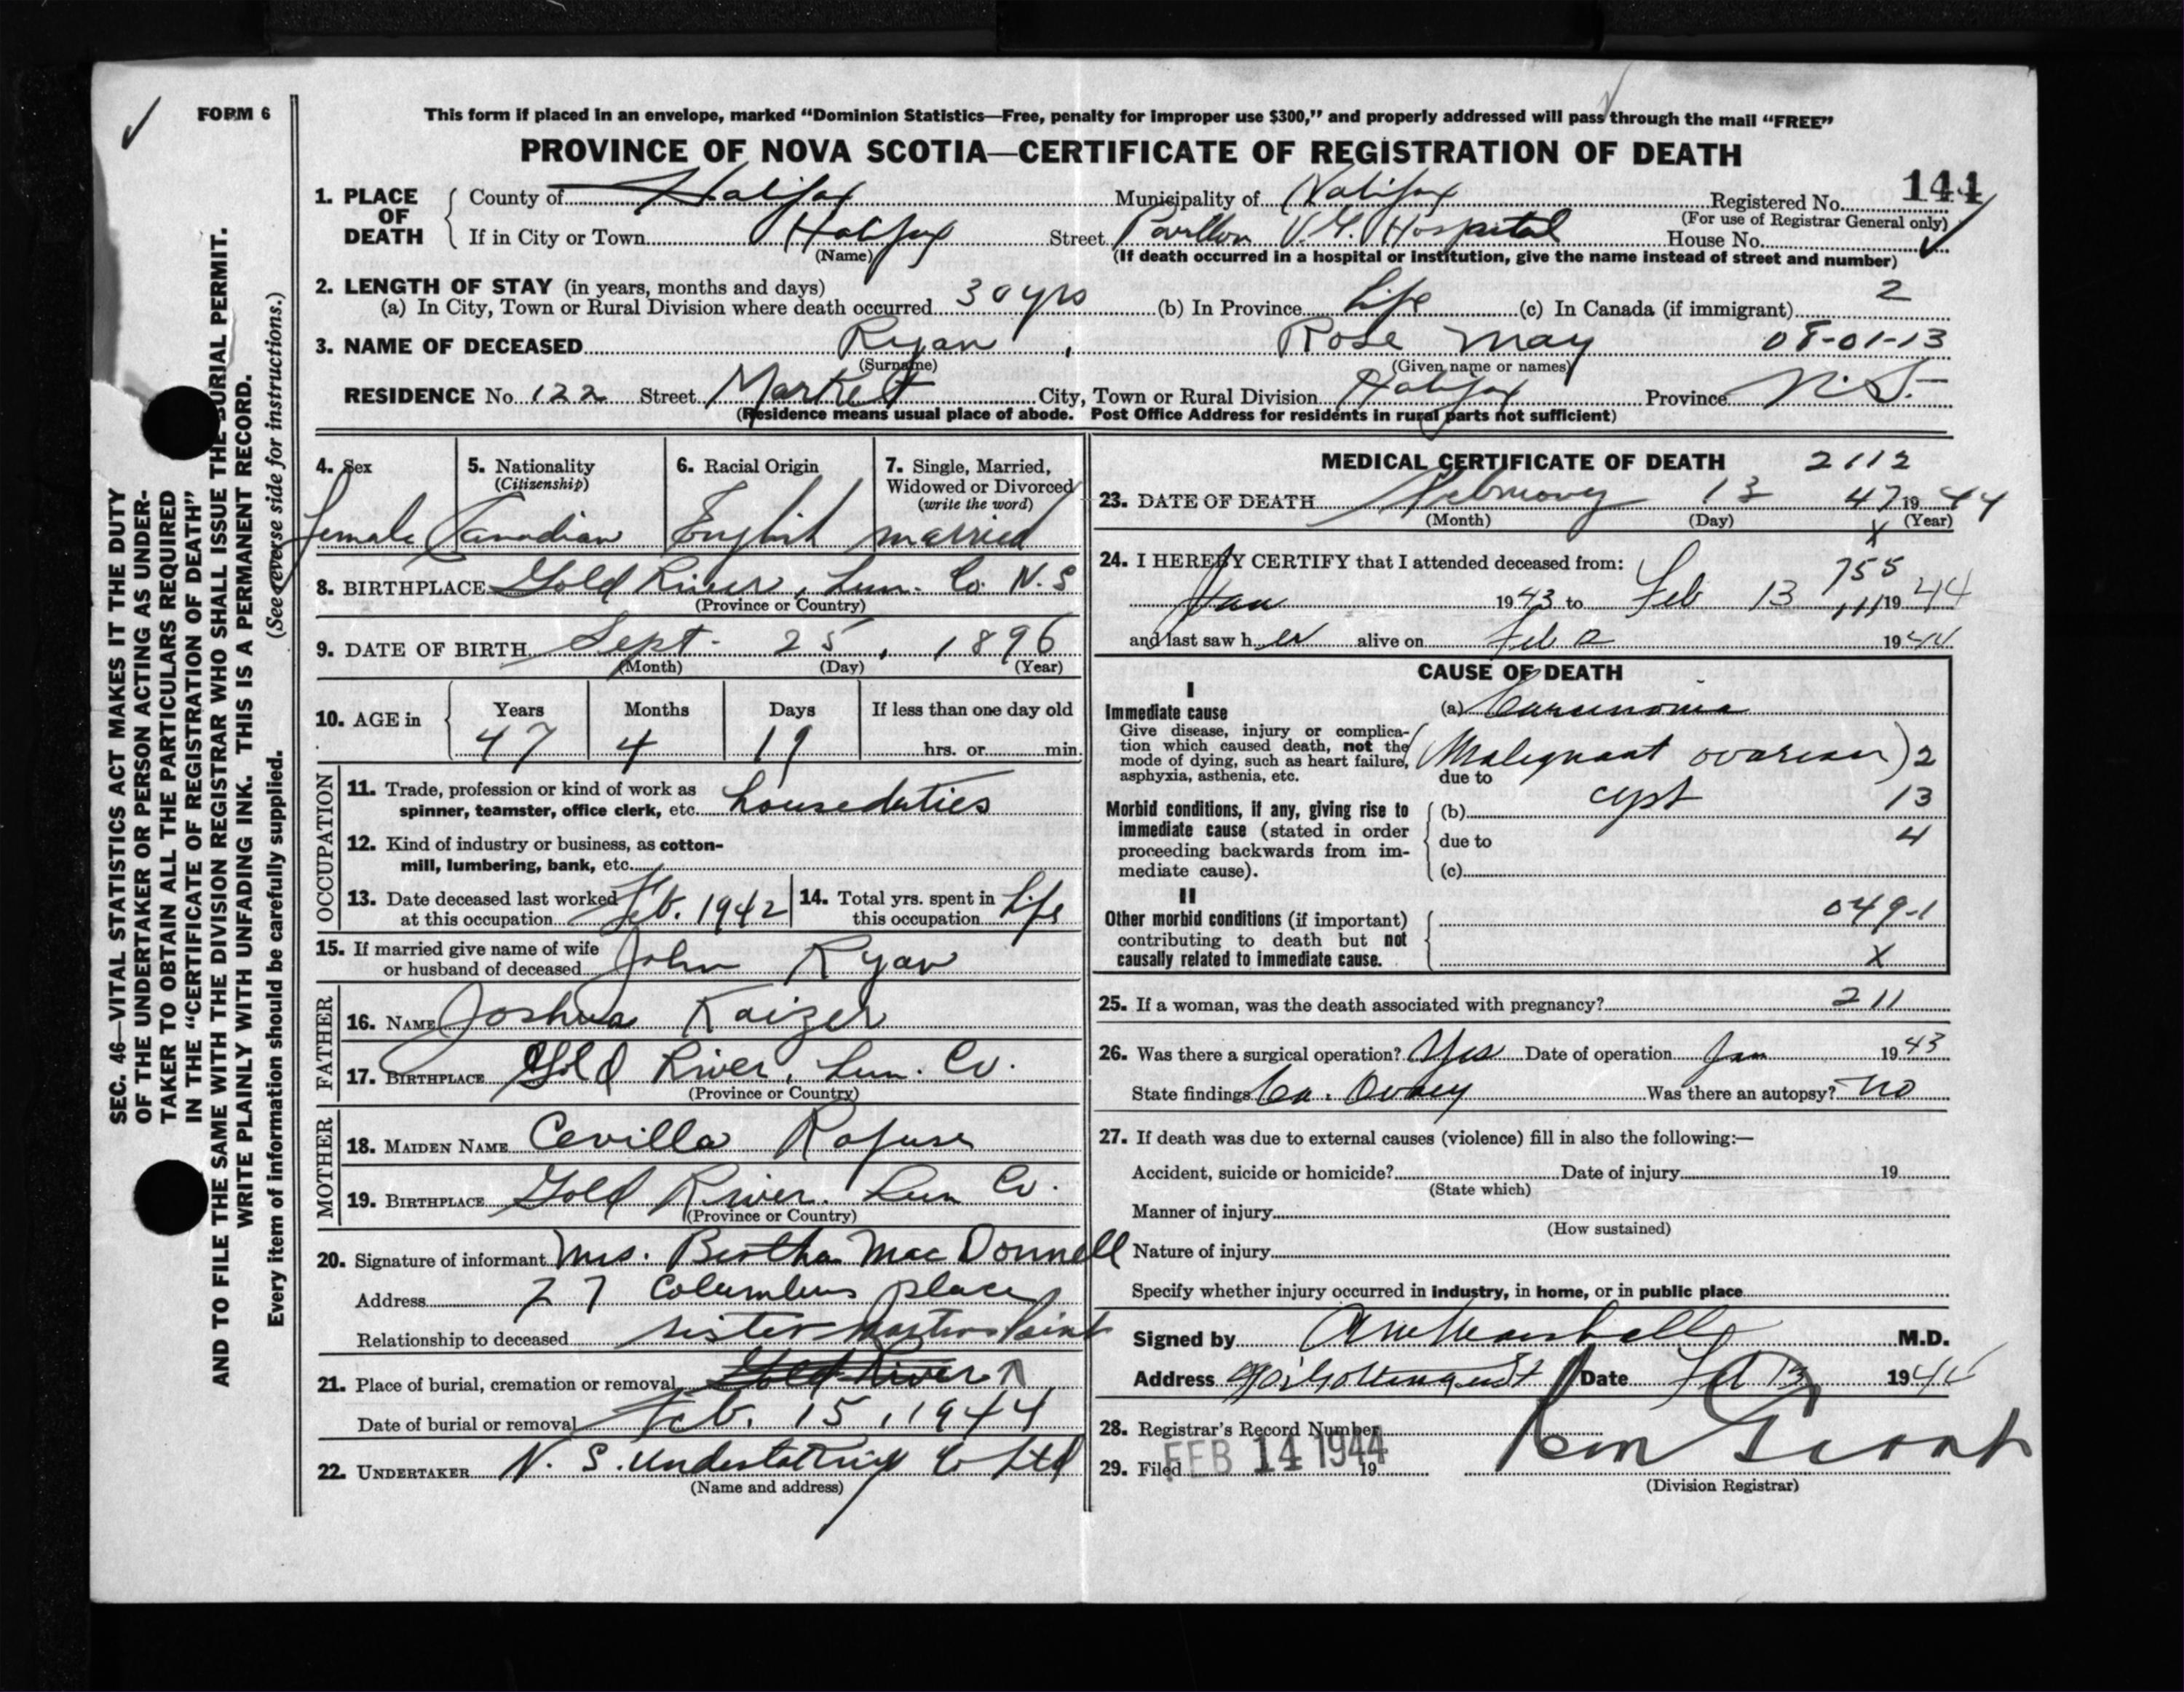 FORM 6
This form if placed in an envelope, marked “Dominion Statistics—Free, penalty for improper use $300,” and properly addressed will pass through the mail “FREE”
PROVINCE OF NOVA SCOTIA—CERTIFICATE OF REGISTRATION OF DEATH
144
1. PLACE OF DEATH
County of Halifax Municipality of Halifax Registered No.
(For use of Registrar General only)
If in City or Town Halifax Street Pavilion V.G. Hospital House No.
(Name) (If death occurred in a hospital or institution, give the name instead of street and number)
2. LENGTH OF STAY (in years, months and days) 2
(a) In City, Town or Rural Division where death occurred 30 yrs (b) In Province Life (c) In Canada (if immigrant)
3. NAME OF DECEASED Ryan, Rose May 08-01-13
(Surname) (Given name or names)
RESIDENCE No. 122 Street Market City, Town or Rural Division Halifax Province N.S.
(Residence means usual place of abode. Post Office Address for residents in rural parts not sufficient)
4. Sex 5. Nationality (Citizenship) 6. Racial Origin 7. Single, Married, Widowed or Divorced (write the word)
Female Canadian English married
8. BIRTHPLACE Gold River, Lun. Co. N.S
(Province or Country)
9. DATE OF BIRTH Sept. 25, 1896
(Month) (Day) (Year)
10. AGE in Years Months Days If less than one day old
47 4 19 hrs. or min.
OCCUPATION
11. Trade, profession or kind of work as spinner, teamster, office clerk, etc. house duties
12. Kind of industry or business, as cotton-mill, lumbering, bank, etc.
13. Date deceased last worked at this occupation Feb. 1942 14. Total yrs. spent in this occupation Life
15. If married give name of wife or husband of deceased John Ryan
FATHER
16. NAME Joshua Kaizer
17. BIRTHPLACE Gold River, Lun. Co.
(Province or Country)
MOTHER
18. MAIDEN NAME Cevilla Rafuse
19. BIRTHPLACE Gold River. Lun Co.
(Province or Country)
20. Signature of informant Mrs. Bertha MacDonnell
Address 27 Columbus place
Relationship to deceased sister Martins Point
21. Place of burial, cremation or removal Gold River
Date of burial or removal Feb. 15, 1944
22. UNDERTAKER N. S. Undertaking Co Ltd
(Name and address)
MEDICAL CERTIFICATE OF DEATH 2112
23. DATE OF DEATH February 13 47 19 44
(Month) (Day) X (Year)
24. I HEREBY CERTIFY that I attended deceased from: 755
Jan 1943 to Feb 13 1944
and last saw her alive on Feb 1944
CAUSE OF DEATH
I
Immediate cause (a) Carcinoma
Give disease, injury or complication which caused death, not the mode of dying, such as heart failure, asphyxia, asthenia, etc.
(Malignant ovarian) 2
due to
cyst 13
Morbid conditions, if any, giving rise to immediate cause (stated in order proceeding backwards from immediate cause).
(b)
due to 4
(c)
II
Other morbid conditions (if important) contributing to death but not causally related to immediate cause.
049-1
X
25. If a woman, was the death associated with pregnancy? 211
26. Was there a surgical operation? Yes Date of operation Jan 1943
State findings Ca. Ovary Was there an autopsy? no
27. If death was due to external causes (violence) fill in also the following:—
Accident, suicide or homicide? Date of injury 19
(State which)
Manner of injury
(How sustained)
Nature of injury
Specify whether injury occurred in industry, in home, or in public place
Signed by Marshall M.D.
Address Date Feb 13 1944
28. Registrar's Record Number
29. Filed FEB 14 1944 19
(Division Registrar)
SEC. 46—VITAL STATISTICS ACT MAKES IT THE DUTY
OF THE UNDERTAKER OR PERSON ACTING AS UNDER-
TAKER TO OBTAIN ALL THE PARTICULARS REQUIRED
IN THE “CERTIFICATE OF REGISTRATION OF DEATH”
AND TO FILE THE SAME WITH THE DIVISION REGISTRAR WHO SHALL ISSUE THE BURIAL PERMIT.
WRITE PLAINLY WITH UNFADING INK. THIS IS A PERMANENT RECORD.
Every item of information should be carefully supplied. (See reverse side for instructions.)